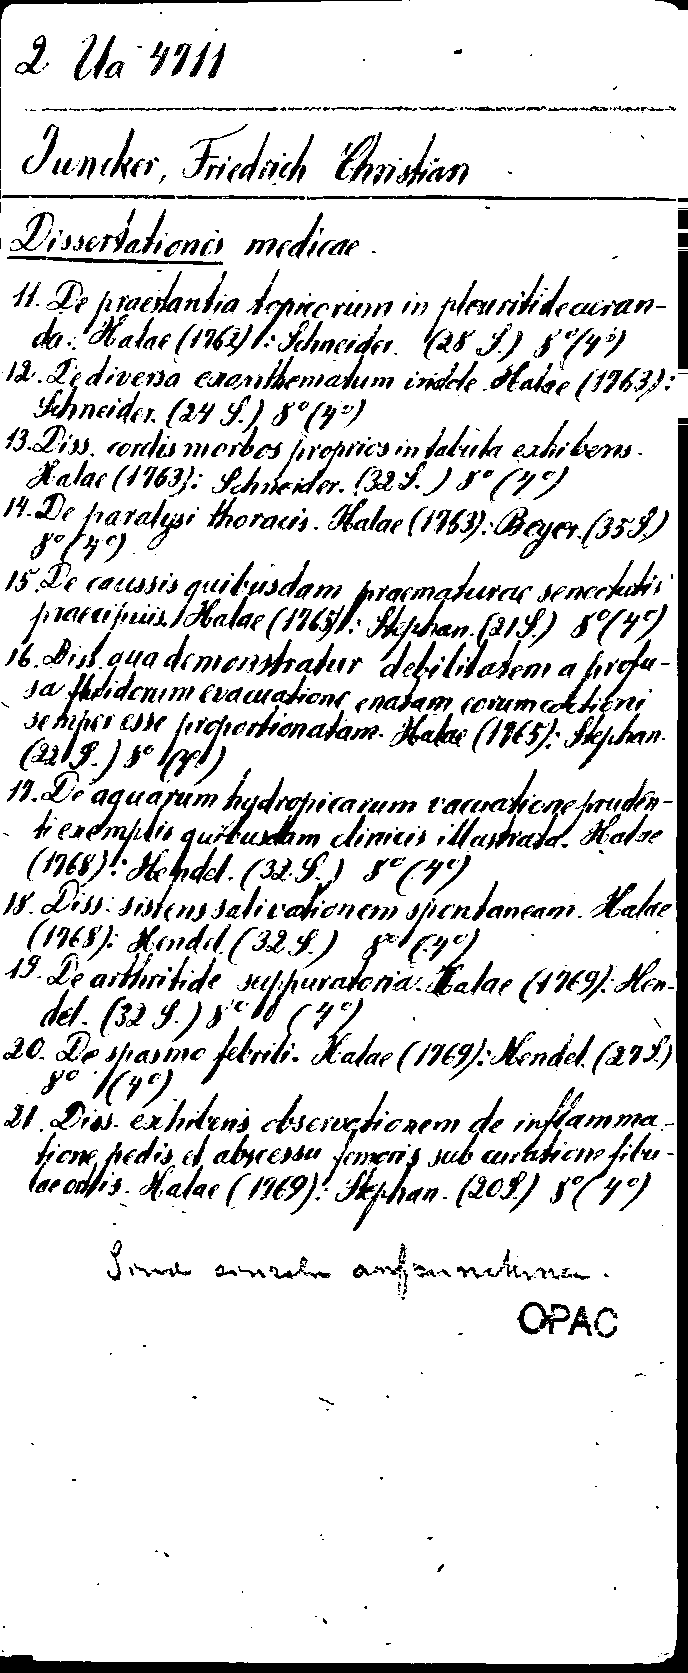 2 Ua 4711
Juncker, Friedrich Christian
Dissertationes medicae.
11. De praestantia topicorum in pleuritide curan-
da. Halae (1762): Schneider. (28 S.) 8° (4°)
12. De diversa exanthematum indole. Halae (1763):
Schneider. (24 S.) 8° (4°)
13. Diss. cordis morbos proprios in tabula exhibens.
Halae (1763): Schneider. (32 S.) 8° (4°)
14. De paralysi thoracis. Halae (1763): Beyer. (35 S.)
8° (4°)
15. De caussis quibusdam praematurae senectutis
praecipuis. Halae (1765): Stephan. (21 S.) 8° (4°)
16. Diss. qua demonstratur debilitatem a profu-
sa fluidorum evacuatione enatam eorum coctioni
semper esse proportionatam. Halae (1765): Stephan.
(22 S.) 8° (4°)
17. De aquarum hydropicarum vacuatione pruden-
ti exemplis quibusdam clinicis illustrata. Halae
(1768): Hendel. (32 S.) 8° (4°)
18. Diss. sistens salivationem spontaneam. Halae
(1768): Hendel. (32 S.) 8° (4°)
19. De arthritide suppuratoria. Halae (1769): Hen-
del. (32 S.) 8° (4°)
20. De spasmo febrili. Halae (1769): Hendel. (27 S.)
8° (4°)
21. Diss. exhibens observationem de inflamma-
tione pedis et abscessu femoris sub curatione fibu-
lae ortis. Halae (1769): Stephan. (20 S.) 8° (4°)
Sind einzeln aufzunehmen.
OPAC